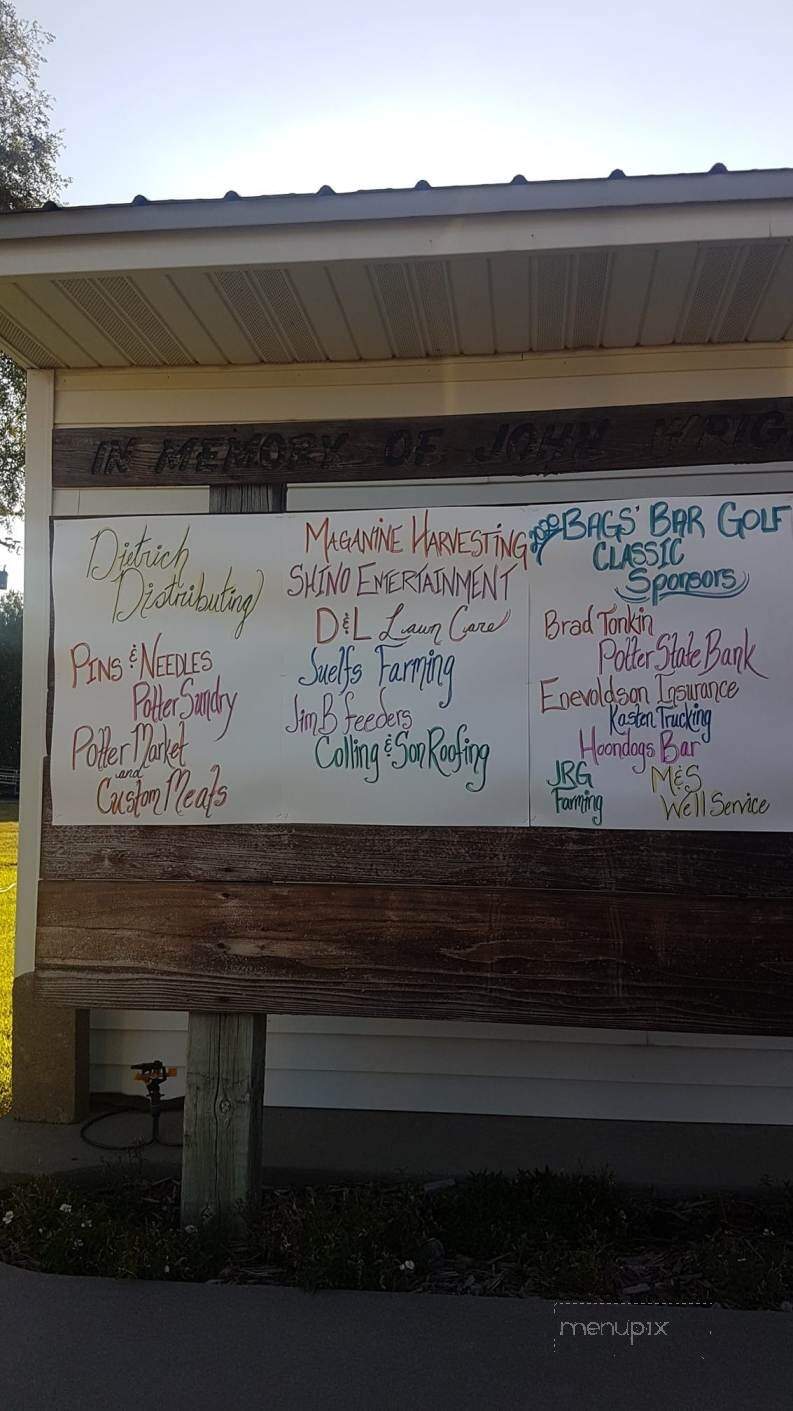 IN MEMORY OF JOHN WRIG
Dietrich
Distributing
PINS & NEEDLES
Potter Sundry
Potter Market
and
Custom Meats
MAGANINE HARVESTING
SHINO ENTERTAINMENT
D&L Lawn Care
Suelfs Farming
Jim B feeders
Colling & Son Roofing
2020 BAGS' BAR GOLF
CLASSIC
Sponsors
Brad Tonkin
Potter State Bank
Enevoldson Insurance
Kasten Trucking
Hoondogs Bar
JRG
Farming
M&S
Well Service
menupix